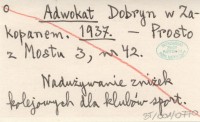 Adwokat Dobryn w Za-
kopanem. 1937. — Prosto
z Mostu 3, nr 42.
Nadużywanie zniżek
kolejowych dla klubów sport.